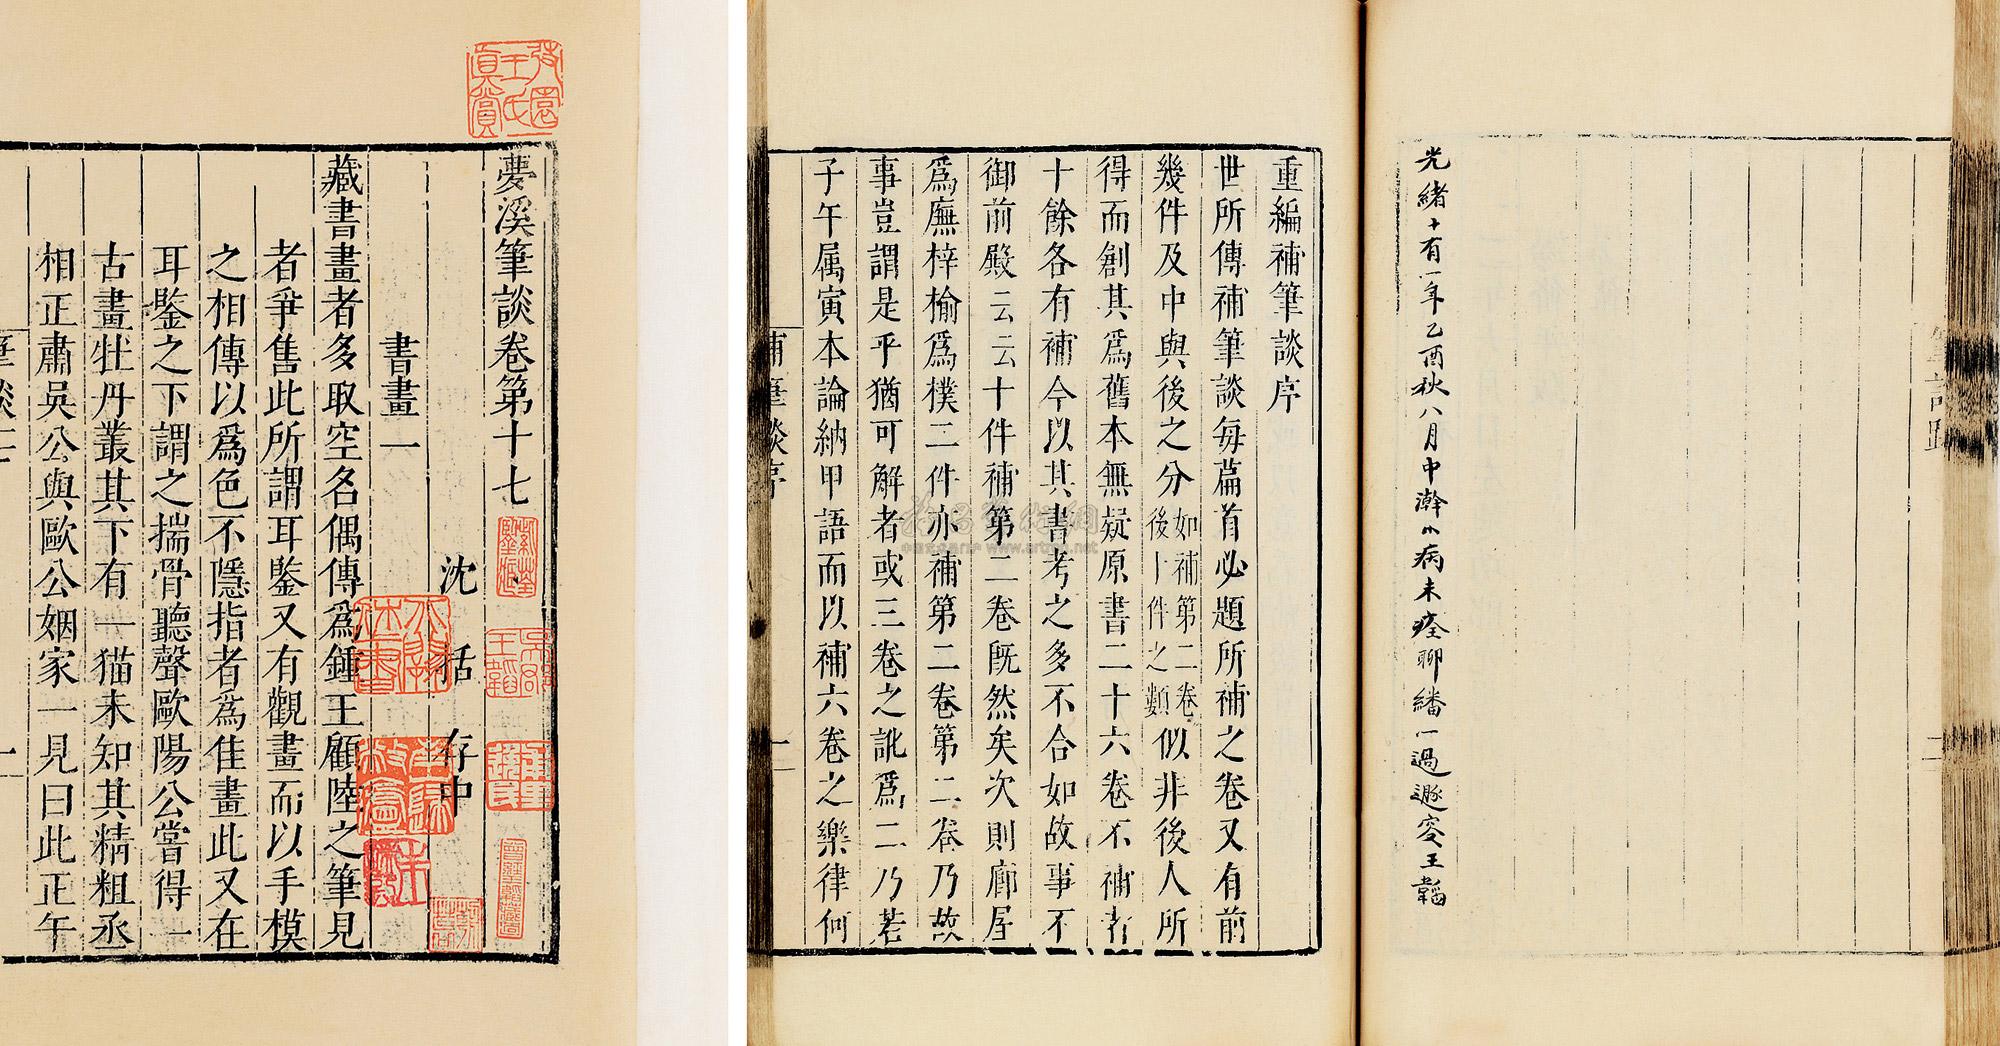 夢溪筆談卷第十七
沈括存中
書畫一
藏書畫者多取空名偶傳爲鍾王顧陸之筆見
者爭售此所謂耳鑒又有觀畫而以手模
之相傳以爲色不隱指者爲佳畫此又在
耳鑒之下謂之揣骨聽聲歐陽公嘗得一
古畫牡丹叢其下有一猫未知其精粗丞
相正肅吳公與歐公姻家一見曰此正午
筆談十七
一
光緒十有一年乙酉秋八月中澣小病未痊聊繙一過遯窔王韜
重編補筆談序
世所傳補筆談每篇首必題所補之卷又有前
幾件及中與後之分如補第二卷後十件之類似非後人所
得而創其爲舊本無疑原書二十六卷不補者
十餘各有補今以其書考之多不合如故事不
御前殿云云十件補第二卷既然矣次則廊屋
爲廡梓榆爲樸二件亦補第二卷第二卷乃故
事豈謂是乎猶可解者或三卷之訛爲二乃若
子午属寅本論納甲語而以補六卷之樂律何
補筆談序
一